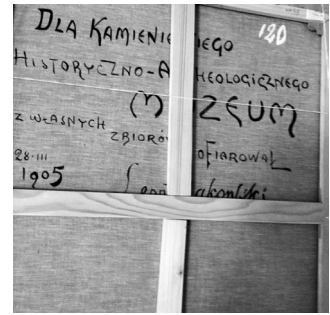 120
DLA KAMIENIE IEGO
HISTORYCZNO-A HEOLOGICZNEGO
M ZEUM
Z WŁASNYCH ZBIORÓ OFIAROWAŁ
28·III
1905
akowski